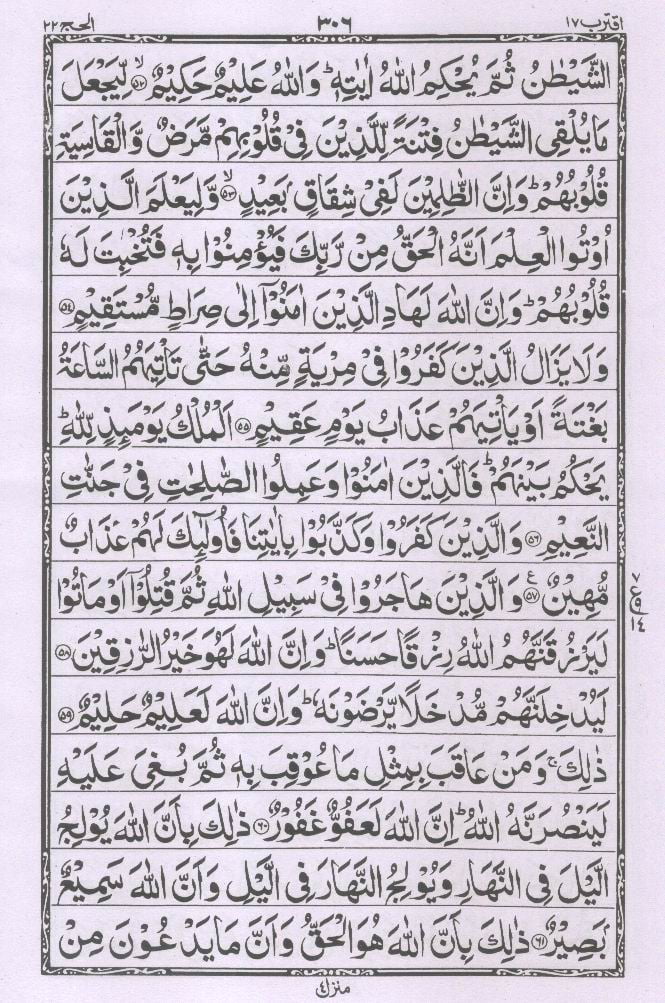 اقترب ١٧ ٣٠٦ الحج ٢٢
الشَّيْطٰنُ ثُمَّ يُحْكِمُ اللّٰهُ اٰيٰتِهٖ ؕ وَاللّٰهُ عَلِيْمٌ حَكِيْمٌ ۙ﴿۵۲﴾ لِّيَجْعَلَ
مَا يُلْقِى الشَّيْطٰنُ فِتْنَةً لِّلَّذِيْنَ فِىْ قُلُوْبِهِمْ مَّرَضٌ وَّالْقَاسِيَةِ
قُلُوْبُهُمْ ؕ وَاِنَّ الظّٰلِمِيْنَ لَفِىْ شِقَاقٍۭ بَعِيْدٍ ۙ﴿۵۳﴾ وَّلِيَعْلَمَ الَّذِيْنَ
اُوْتُوا الْعِلْمَ اَنَّهُ الْحَقُّ مِنْ رَّبِّكَ فَيُؤْمِنُوْا بِهٖ فَتُخْبِتَ لَهٗ
قُلُوْبُهُمْ ؕ وَاِنَّ اللّٰهَ لَهَادِ الَّذِيْنَ اٰمَنُوْۤا اِلٰى صِرَاطٍ مُّسْتَقِيْمٍ ﴿۵۴﴾
وَلَا يَزَالُ الَّذِيْنَ كَفَرُوْا فِىْ مِرْيَةٍ مِّنْهُ حَتّٰى تَاْتِيَهُمُ السَّاعَةُ
بَغْتَةً اَوْ يَاْتِيَهُمْ عَذَابُ يَوْمٍ عَقِيْمٍ ﴿۵۵﴾ اَلْمُلْكُ يَوْمَئِذٍ لِّلّٰهِ ؕ
يَحْكُمُ بَيْنَهُمْ ؕ فَالَّذِيْنَ اٰمَنُوْا وَعَمِلُوا الصّٰلِحٰتِ فِىْ جَنّٰتِ
النَّعِيْمِ ﴿۵۶﴾ وَالَّذِيْنَ كَفَرُوْا وَكَذَّبُوْا بِاٰيٰتِنَا فَاُولٰٓئِكَ لَهُمْ عَذَابٌ
مُّهِيْنٌ ﴿۵۷﴾ ع وَالَّذِيْنَ هَاجَرُوْا فِىْ سَبِيْلِ اللّٰهِ ثُمَّ قُتِلُوْۤا اَوْ مَاتُوْا
٧ ع ٩ ١٤
لَيَرْزُقَنَّهُمُ اللّٰهُ رِزْقًا حَسَنًا ؕ وَاِنَّ اللّٰهَ لَهُوَ خَيْرُ الرّٰزِقِيْنَ ﴿۵۸﴾
لَيُدْخِلَنَّهُمْ مُّدْخَلًا يَّرْضَوْنَهٗ ؕ وَاِنَّ اللّٰهَ لَعَلِيْمٌ حَلِيْمٌ ﴿۵۹﴾
ذٰلِكَ ۚ وَمَنْ عَاقَبَ بِمِثْلِ مَا عُوْقِبَ بِهٖ ثُمَّ بُغِىَ عَلَيْهِ
لَيَنْصُرَنَّهُ اللّٰهُ ؕ اِنَّ اللّٰهَ لَعَفُوٌّ غَفُوْرٌ ﴿۶۰﴾ ذٰلِكَ بِاَنَّ اللّٰهَ يُوْلِجُ
الَّيْلَ فِى النَّهَارِ وَيُوْلِجُ النَّهَارَ فِى الَّيْلِ وَاَنَّ اللّٰهَ سَمِيْعٌۢ
بَصِيْرٌ ﴿۶۱﴾ ذٰلِكَ بِاَنَّ اللّٰهَ هُوَ الْحَقُّ وَاَنَّ مَا يَدْعُوْنَ مِنْ
منزل ٤